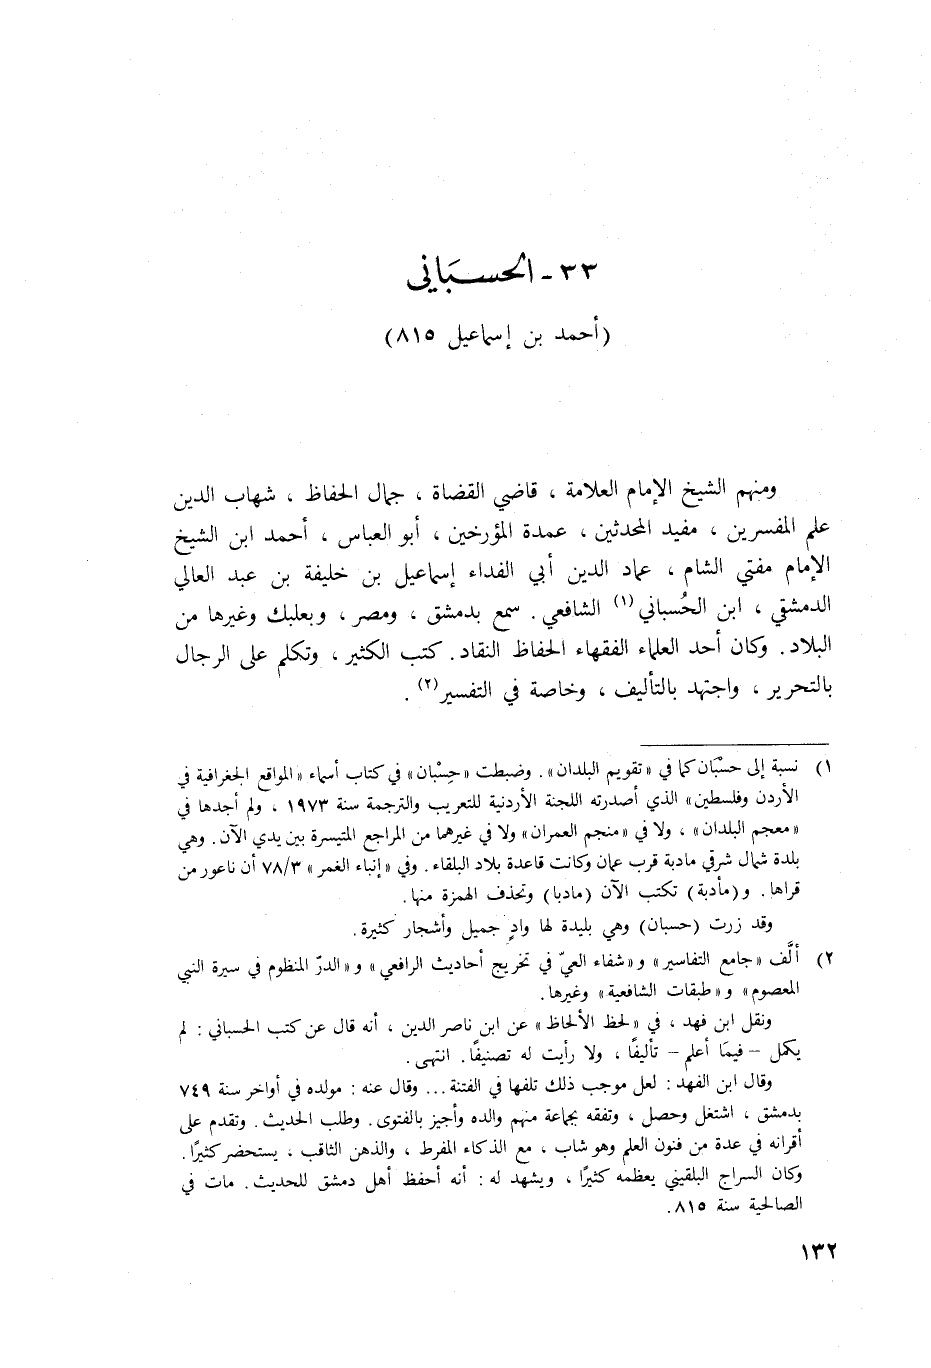 ٣٣ - الحسبَاني
(أحمد بن إسماعيل ٨١٥)
ومنهم الشيخ الإمام العلامة ، قاضي القضاة ، جمال الحفاظ ، شهاب الدين
علم المفسرين ، مفيد المحدثين ، عمدة المؤرخين ، أبو العباس ، أحمد ابن الشيخ
الإمام مفتي الشام ، عماد الدين أبي الفداء إسماعيل بن خليفة بن عبد العالي
الدمشقي ، ابن الحُسباني(١) الشافعي . سمع بدمشق ، ومصر ، وبعلبك وغيرها من
البلاد . وكان أحد العلماء الفقهاء الحفاظ النقاد . كتب الكثير ، وتكلم على الرجال
بالتحرير ، واجتهد بالتأليف ، وخاصة في التفسير(٢) .
١) نسبة إلى حسْبَان كما في «تقويم البلدان» . وضبطت «حِسْبان» في كتاب أسماء «المواقع الجغرافية في
الأردن وفلسطين» الذي أصدرته اللجنة الأردنية للتعريب والترجمة سنة ١٩٧٣ ، ولم أجدها في
«معجم البلدان» ، ولا في «منجم العمران» ولا في غيرهما من المراجع المتيسرة بين يدي الآن . وهي
بلدة شمال شرقي مادبة قرب عمان وكانت قاعدة بلاد البلقاء . وفي «إنباء الغمر» ٧٨/٣ أن ناعور من
قراها . و(مأدبة) تكتب الآن (مادبا) وتحذف الهمزة منها .
وقد زرت (حسبان) وهي بليدة لها وادٍ جميل وأشجار كثيرة .
٢) ألَّف «جامع التفاسير» و«شفاء العيّ في تخريج أحاديث الرافعي» و«الدرّ المنظوم في سيرة النبي
المعصوم» و«طبقات الشافعية» وغيرها .
ونقل ابن فهد ، في «لحظ الألحاظ» عن ابن ناصر الدين ، أنه قال عن كتب الحسباني : لم
يكمل – فيمَا أعلم – تأليفًا ، ولا رأيت له تصنيفًا . انتهى .
وقال ابن الفهد : لعل موجب ذلك تلفها في الفتنة ... وقال عنه : مولده في أواخر سنة ٧٤٩
بدمشق ، اشتغل وحصل ، وتفقه بجماعة منهم والده وأجيز بالفتوى . وطلب الحديث . وتقدم على
أقرانه في عدة من فنون العلم وهو شاب ، مع الذكاء المفرط ، والذهن الثاقب ، يستحضر كثيرًا .
وكان السراج البلقيني يعظمه كثيرًا ، ويشهد له : أنه أحفظ أهل دمشق للحديث . مات في
الصالحية سنة ٨١٥ .
١٣٢